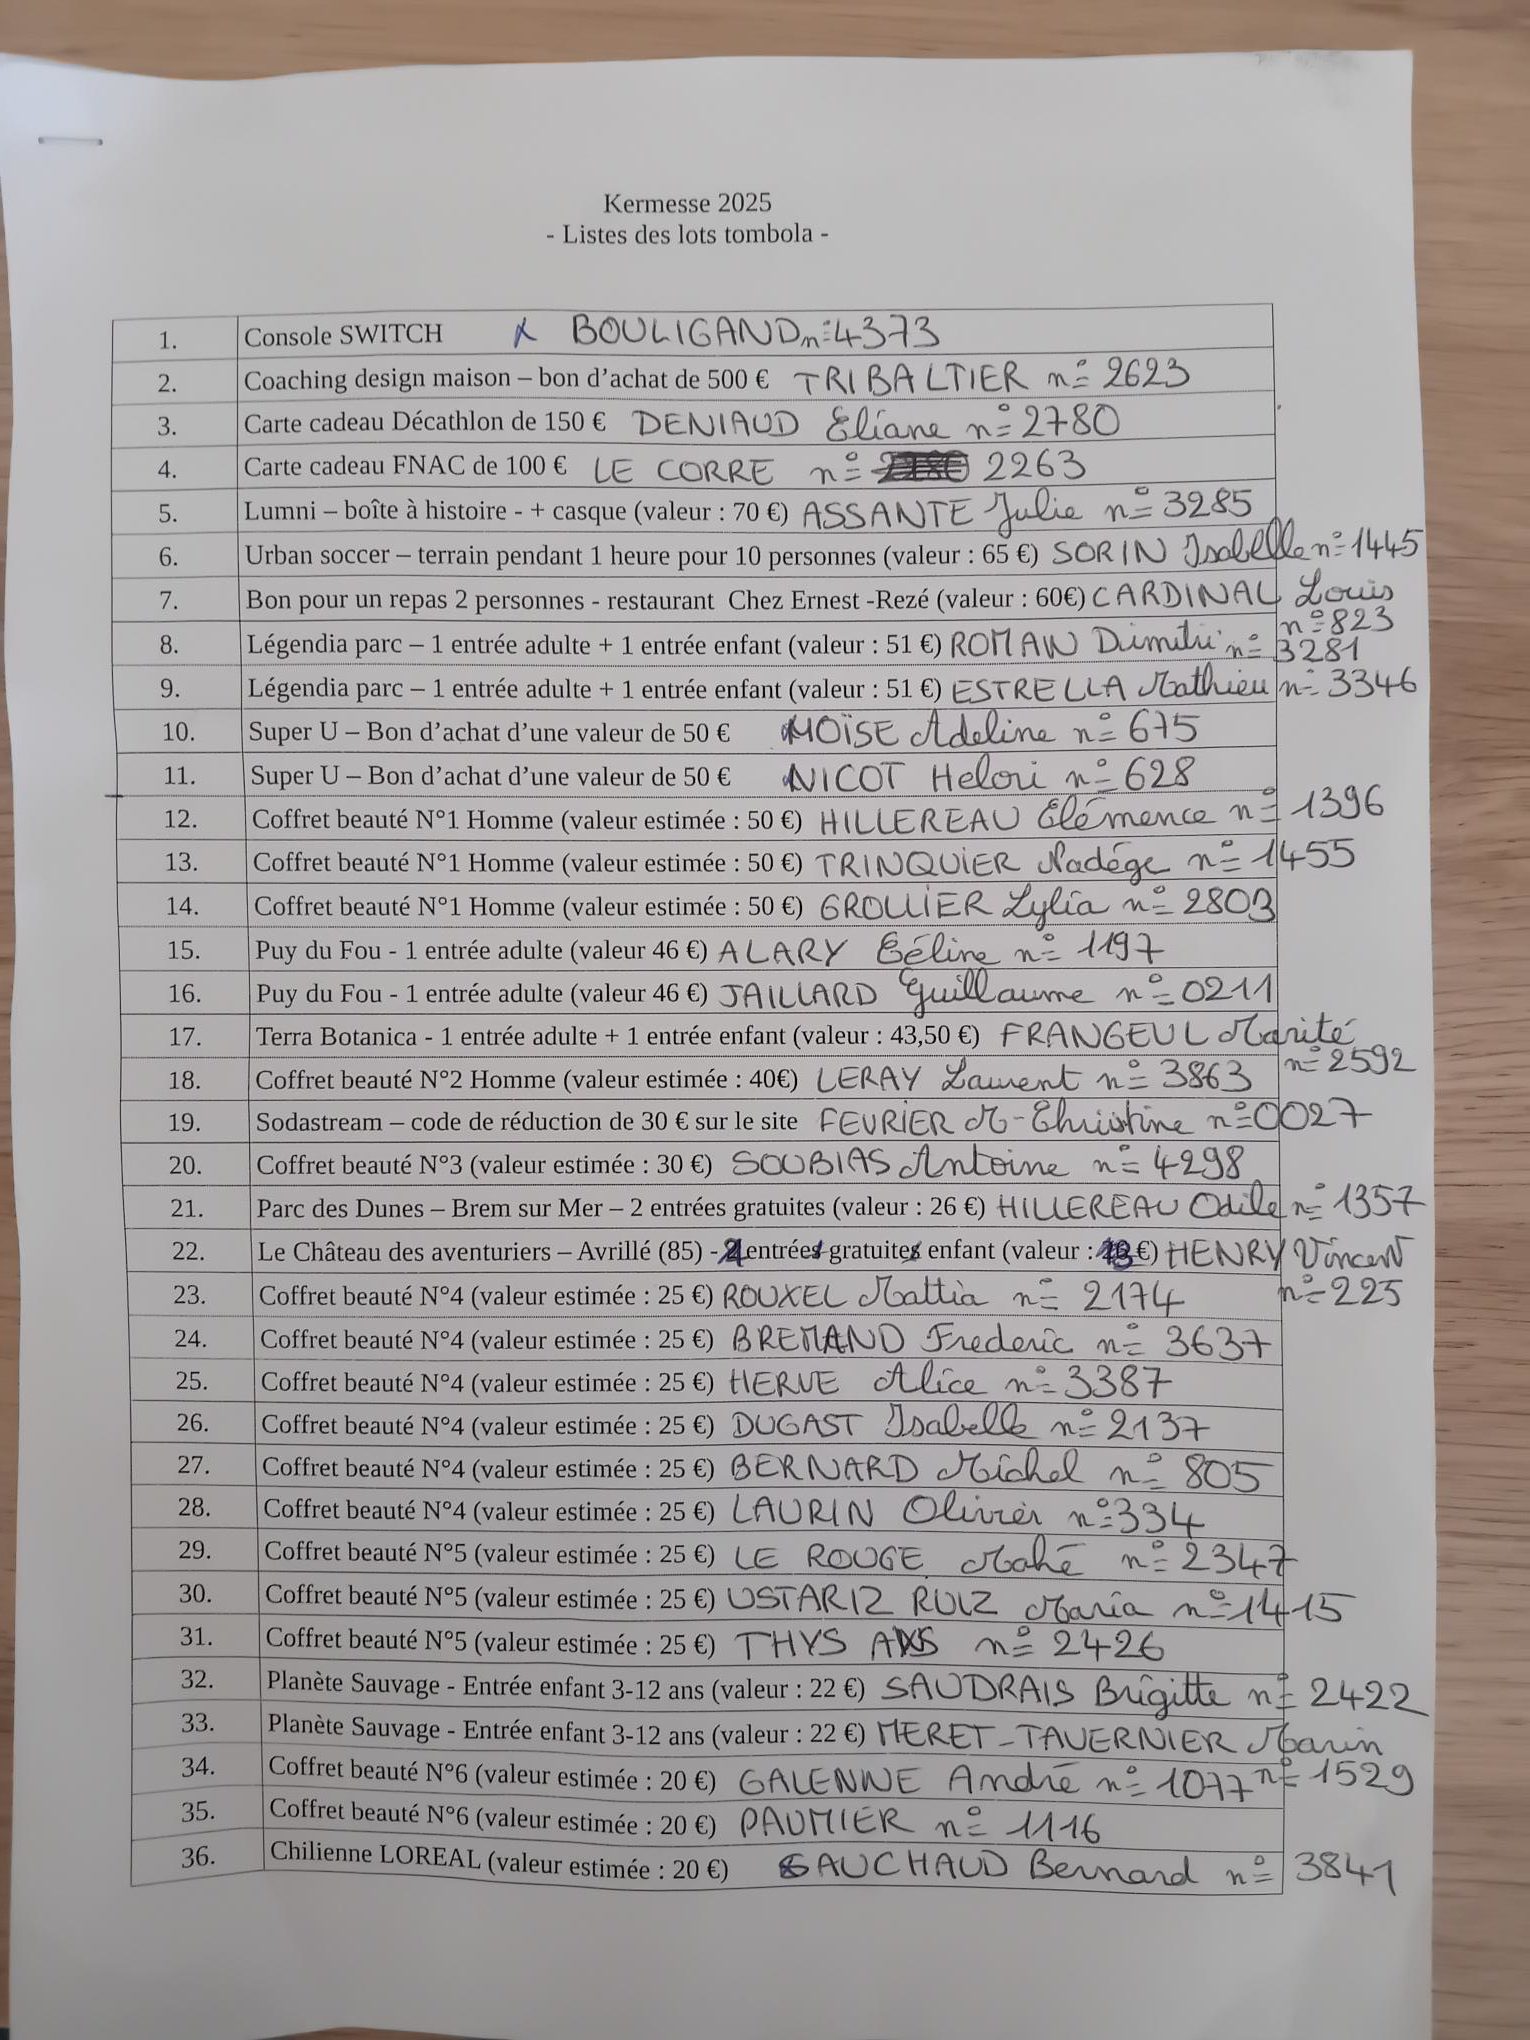 Kermesse 2025
- Listes des lots tombola -
1. Console SWITCH BOULIGAND n° 4373
2. Coaching design maison – bon d'achat de 500 € TRIBALTIER n° 2623
3. Carte cadeau Décathlon de 150 € DENIAUD Eliane n° 2780
4. Carte cadeau FNAC de 100 € LE CORRE n° 2263
5. Lumni – boîte à histoire - + casque (valeur : 70 €) ASSANTE Julie n° 3285
6. Urban soccer – terrain pendant 1 heure pour 10 personnes (valeur : 65 €) SORIN Isabelle n° 1445
7. Bon pour un repas 2 personnes - restaurant Chez Ernest -Rezé (valeur : 60€) CARDINAL Louis
n° 823
8. Légendia parc – 1 entrée adulte + 1 entrée enfant (valeur : 51 €) ROMAN Dimitri n° 3281
9. Légendia parc – 1 entrée adulte + 1 entrée enfant (valeur : 51 €) ESTRELLA Mathieu n° 3346
10. Super U – Bon d'achat d'une valeur de 50 € MOÏSE Adeline n° 675
11. Super U – Bon d'achat d'une valeur de 50 € NICOT Helori n° 628
12. Coffret beauté N°1 Homme (valeur estimée : 50 €) HILLEREAU Clémence n° 1396
13. Coffret beauté N°1 Homme (valeur estimée : 50 €) TRINQUIER Nadége n° 1455
14. Coffret beauté N°1 Homme (valeur estimée : 50 €) GROLLIER Lylia n° 2803
15. Puy du Fou - 1 entrée adulte (valeur 46 €) ALARY Céline n° 1197
16. Puy du Fou - 1 entrée adulte (valeur 46 €) JAILLARD Guillaume n° 0211
17. Terra Botanica - 1 entrée adulte + 1 entrée enfant (valeur : 43,50 €) FRANGEUL Marité
n° 2592
18. Coffret beauté N°2 Homme (valeur estimée : 40€) LERAY Laurent n° 3863
19. Sodastream – code de réduction de 30 € sur le site FEVRIER M-Christine n° 0027
20. Coffret beauté N°3 (valeur estimée : 30 €) SOUBIAS Antoine n° 4298
21. Parc des Dunes – Brem sur Mer – 2 entrées gratuites (valeur : 26 €) HILLEREAU Odile n° 1357
22. Le Château des aventuriers – Avrillé (85) - entrée gratuite enfant (valeur : €) HENRY Vincent
n° 225
23. Coffret beauté N°4 (valeur estimée : 25 €) ROUXEL Mattia n° 2174
24. Coffret beauté N°4 (valeur estimée : 25 €) BREMAND Frederic n° 3637
25. Coffret beauté N°4 (valeur estimée : 25 €) HERVE Alice n° 3387
26. Coffret beauté N°4 (valeur estimée : 25 €) DUGAST Isabelle n° 2137
27. Coffret beauté N°4 (valeur estimée : 25 €) BERNARD Michel n° 805
28. Coffret beauté N°4 (valeur estimée : 25 €) LAURIN Olivier n° 334
29. Coffret beauté N°5 (valeur estimée : 25 €) LE ROUGE Mahé n° 2347
30. Coffret beauté N°5 (valeur estimée : 25 €) USTARIZ RUIZ Maria n° 1415
31. Coffret beauté N°5 (valeur estimée : 25 €) THYS n° 2426
32. Planète Sauvage - Entrée enfant 3-12 ans (valeur : 22 €) SAUDRAIS Brigitte n° 2422
33. Planète Sauvage - Entrée enfant 3-12 ans (valeur : 22 €) MERET-TAVERNIER Marin
n° 1529
34. Coffret beauté N°6 (valeur estimée : 20 €) GALENNE André n° 1077
35. Coffret beauté N°6 (valeur estimée : 20 €) PAUMIER n° 1116
36. Chilienne LOREAL (valeur estimée : 20 €) GAUCHAUD Bernard n° 3841